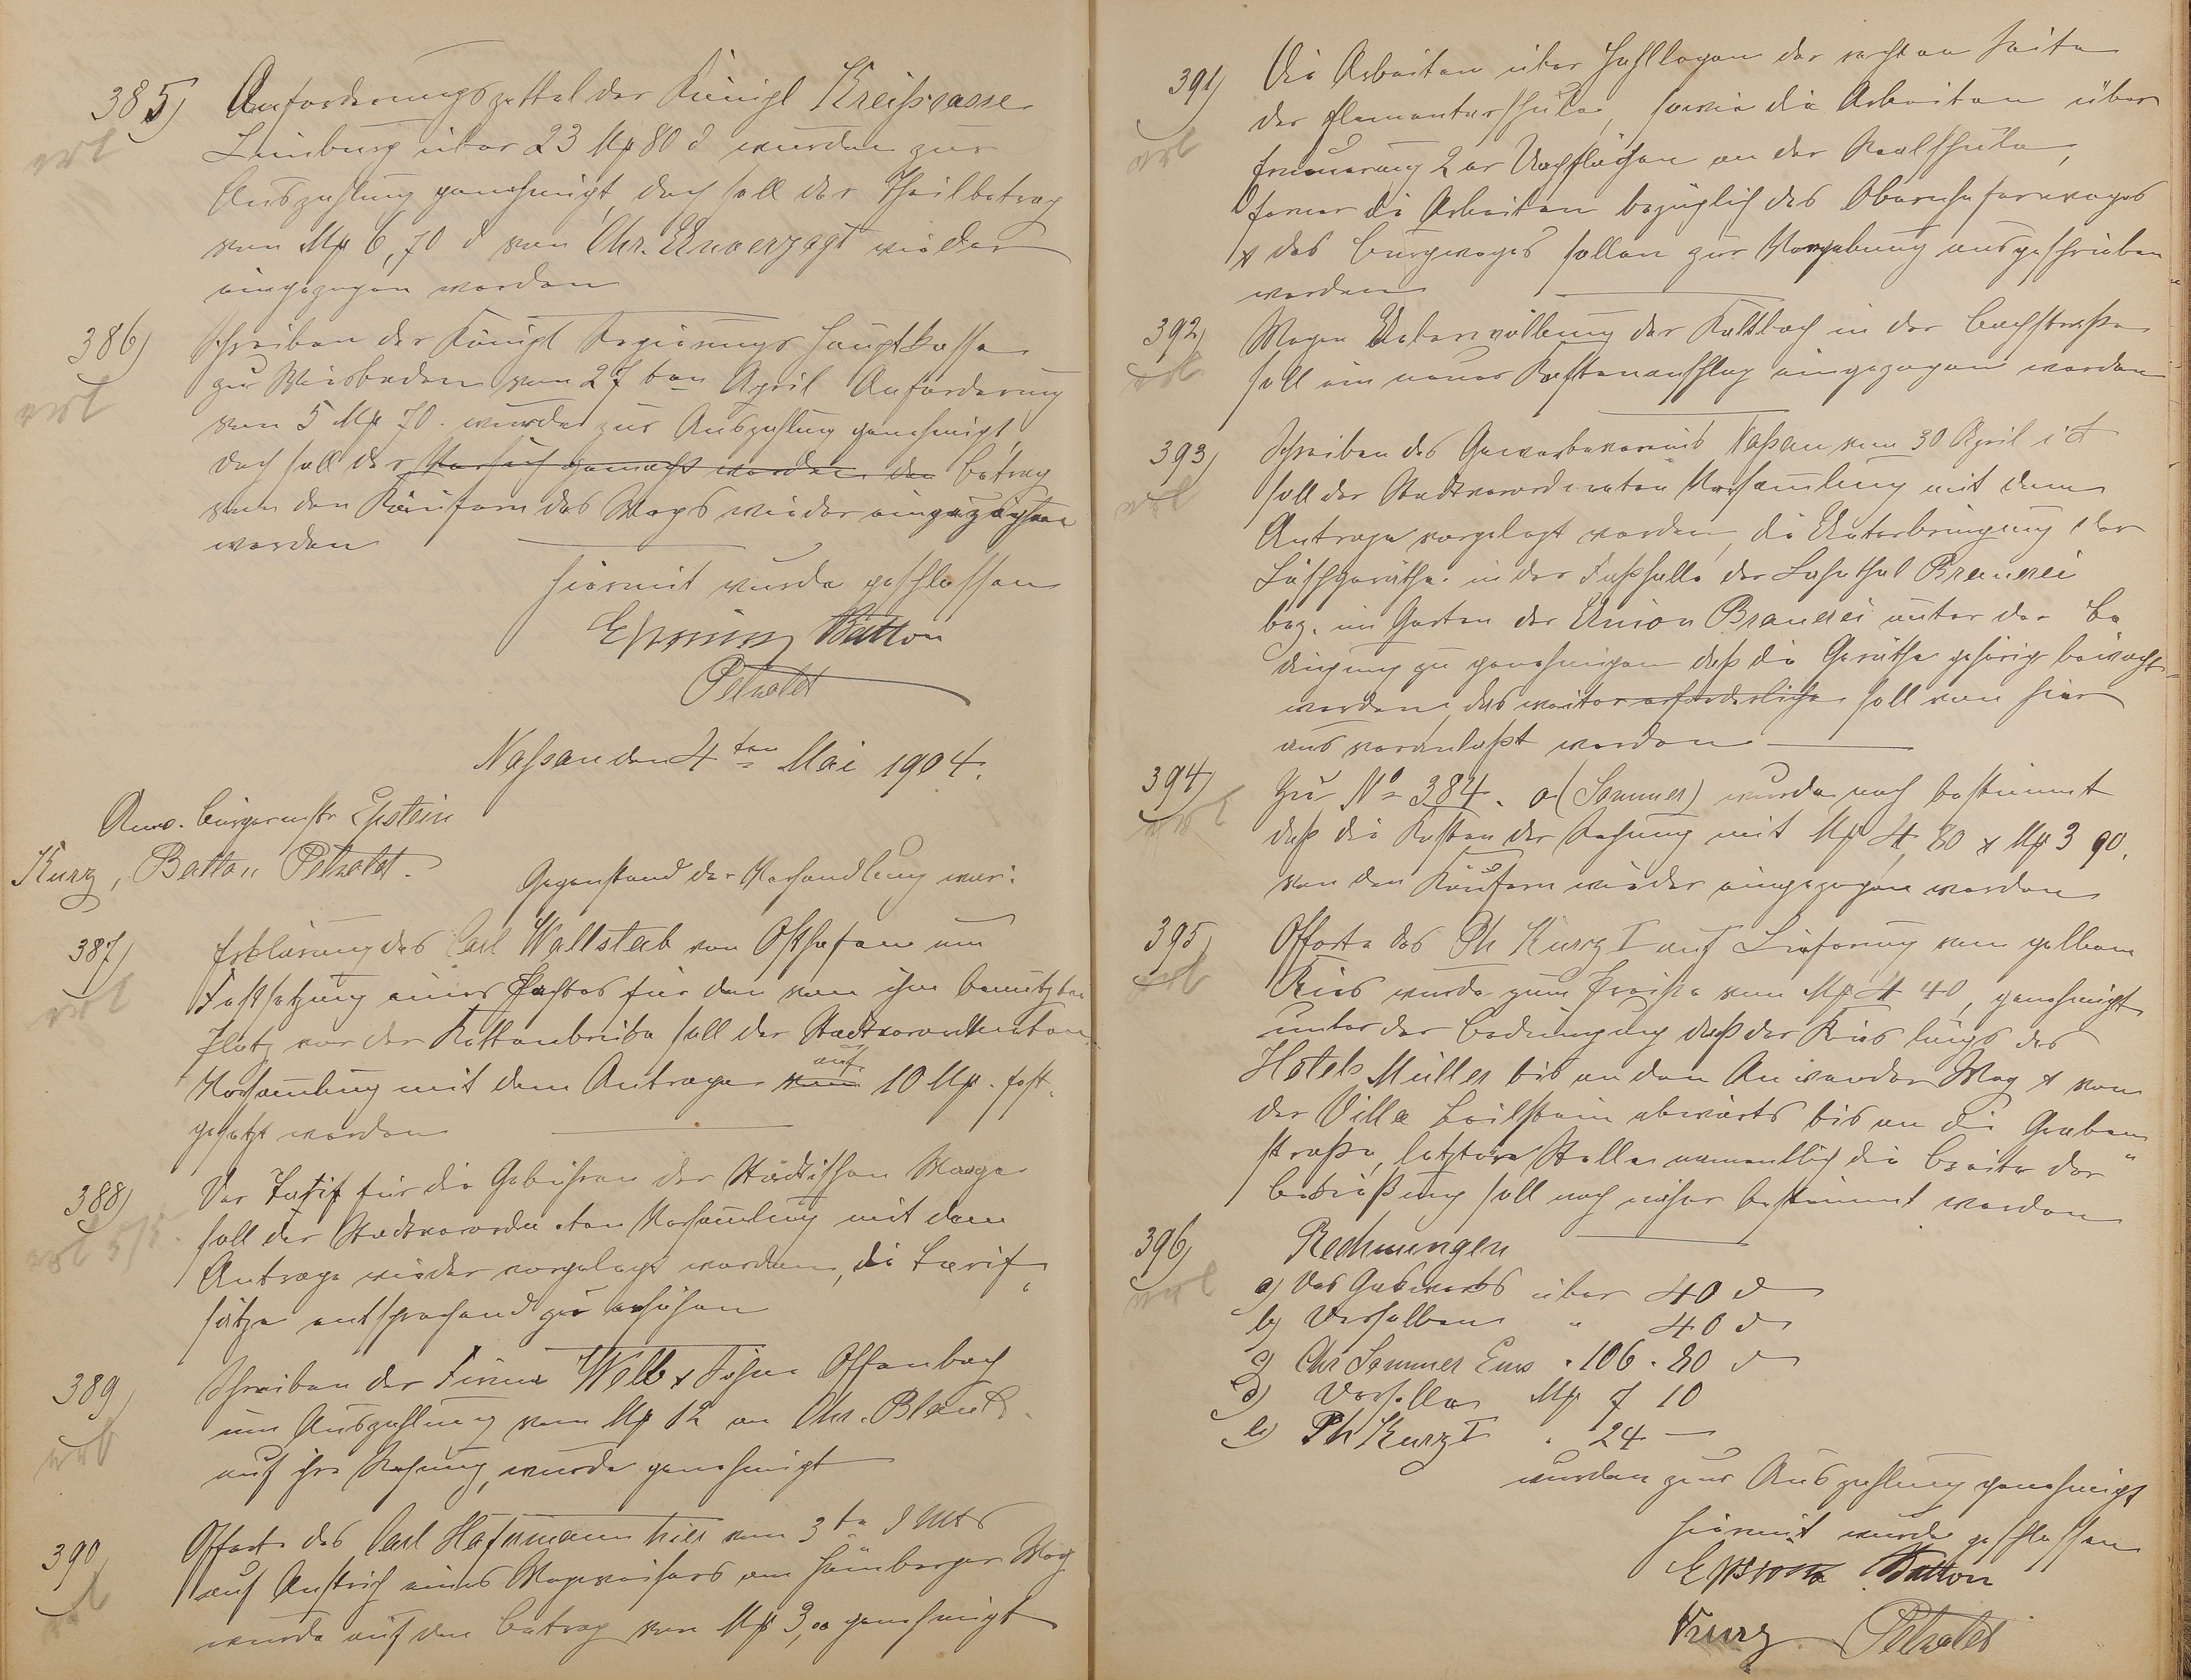 385) Anforderungszettel der Königl Kreiskasse
erl
Limburg über 23 Mk 80 d wurden zur
Auszahlung genehmigt doch soll der Theilbetrag
von Mk 6,70 d von Chr. Unverzagt wieder
eingezogen werden
386) Schreiben der Königl Regierungs Hauptkasse
erl
zu Wiesbaden vom 27ten April Anforderung
von 5 Mk 70. wurde zur Auszahlung genehmigt,
doch soll der Versuch gemacht werden den Betrag
von den Käufern des Wegs wieder eingezogen
werden
Hiermit wurde geschlossen
Epstein Batton
Petzoldt
Nassau den 4ten Mai 1904.
Anw. Bürgermstr Epstein
Kurz, Batton Petzoldt.
Gegenstand der Verhandlung war:
387) Erklärung des Carl Wallstab von Osthofen um
erl
Festsetzung eines Pachtes für den von ihm benutzten
Platz vor der Kettenbrücke soll der Stadtverordneten
auf
Versammlung mit dem Antrage von 10 Mk. fest
gesetzt werden
388) Der Tarif für die Gebühren der Städtischen Waage
erl 5/5.
soll der Stadtverordneten Versammlung mit dem
Antrage wieder vorgelegt werden, die Tarif
sätze entsprechend zu erhöhen
389) Schreiben der Firma Welb & Söhne Offenbach
erl
um Auszahlung von Mk 12 an Chr. Blank
auf ihre Rechnung, wurde genehmigt
390) Offerte des Carl Hafermann hier vom 3ten d Mts
erl
auf Anstrich eines Wegweisers am Hömberger Weg
wurde auf den Betrag von Mk 3,00 genehmigt
391) Die Arbeiten über Hohllegen der rechten Seite
erl
der Elementarschule, sowie die Arbeiten über
Erneuerung 2er Dachflächen an der Realschule,
ferner die Arbeiten bezüglich des Obernhoferweges
& des Burgweges sollen zur Vergebung ausgeschrieben
werden
392) Wegen Ueberwölbung der Kaltbach in der Bachstrasse
erl
soll ein neuer Kostenanschlag eingezogen werden
393) Schreiben des Gewerbevereins Nassau vom 30 April
erl
soll der Stadtverordneten Versammlung mit dem
Antrage vorgelegt werden, die Unterbringung der
Löschgeräthe in der Fasshalle der Lahnthal Brauerei
bez. im Garten der Union Brauerei unter der Be
dingung zu genehmigen dass die Geräthe gehörig bewacht
werden, das weiter erforderliche soll von hier
aus veranlasst werden
394) Zu No 384. a (Sommer) wurde noch bestimmt
erl
dass die Kosten der Rechnung mit Mk 4,80 & Mk 3 90.
von den Käufern wieder eingezogen werden
395) Offerte des Ph Kurz I auf Lieferung von gelbem
erl
Kies wurde zum Preise von Mk 4 40, genehmigt
unter der Bedingung dass der Kies längs des
Hotels Müller bis an den Anwender Weg & von
der Villa Beilstein abwärts bis an die Graben
strasse, letztere Stelle namentlich die Breite der
Bekiesung soll noch näher bestimmt werden
396) Rechnungen
erl
a) des Gaswerks über 40 d
b) Desselben " 40 d
c) Chr Sommer Ems " 106 . 80 d
d) Derselbe Mk 7 10
e) Ph Kurz I " 24 —
wurden zur Auszahlung genehmigt
Hiermit wurde geschlossen
Epstein Batton
Kurz Petzoldt